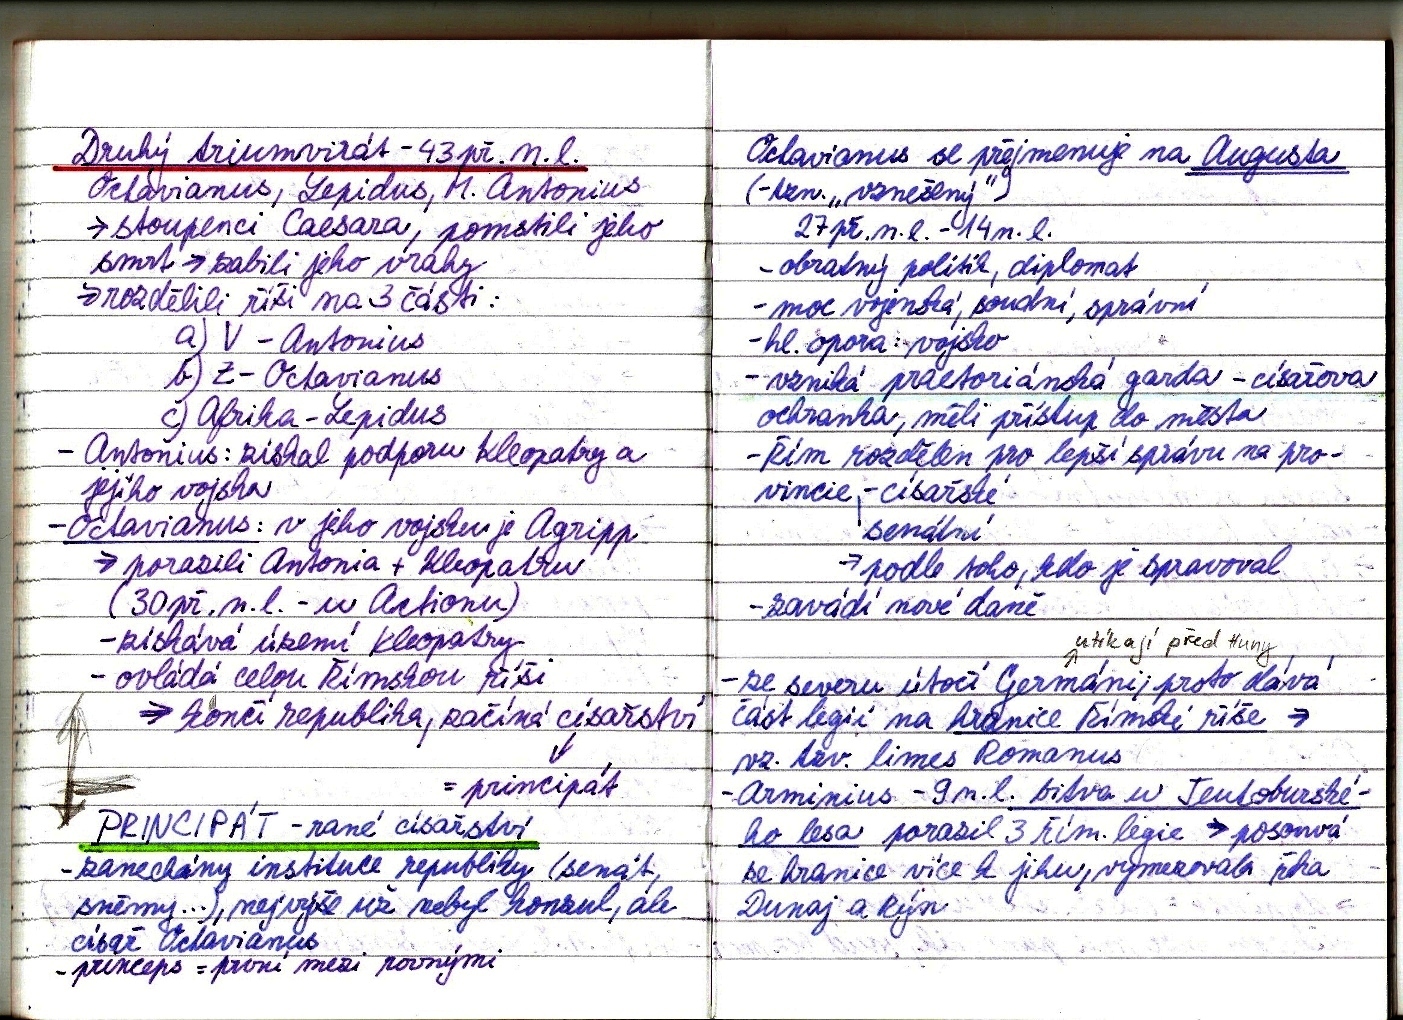 Druhý triumvirát - 43 př. n. l.
Octavianus, Lepidus, M. Antonius
→ stoupenci Caesara, pomstili jeho
smrt → zabili jeho vrahy
→ rozdělili říši na 3 části:
a) V - Antonius
b) Z - Octavianus
c) Afrika - Lepidus
- Antonius: získal podporu Kleopatry a
jejího vojska
- Octavianus: v jeho vojsku je Agripp
→ porazili Antonia + Kleopatru
(30 př. n. l. - u Actionu)
- získává území Kleopatry
- ovládá celou Římskou říši
⇒ končí republika, začíná císařství
= principát
PRINCIPÁT - rané císařství
- zanechány instituce republiky (senát,
sněmy...), nejvýše už nebyl konzul, ale
císař Octavianus
- princeps = první mezi rovnými
Octavianus se přejmenuje na Augusta
(- tzn. „vznešený")
27 př. n. l. - 14 n. l.
- obratný politik, diplomat
- moc vojenská, soudní, správní
- hl. opora: vojsko
- vzniká praetoriánská garda - císařova
ochranka, měli přístup do města
- Řím rozdělen pro lepší správu na pro-
vincie - císařské
senátní
→ podle toho, kdo je spravoval
- zavádí nové daně
utíkají před Huny
- ze severu útočí Germáni, proto dává
část legií na hranice Římské říše →
vz. tzv. limes Romanus
- Arminius - 9 n. l. bitva u Teutoburské-
ho lesa porazil 3 řím. legie → posouvá
se hranice více k jihu, vymezovala řeka
Dunaj a Rýn